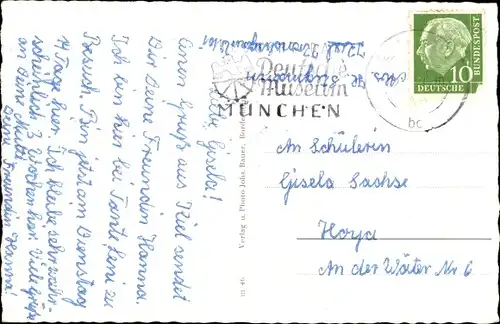 Liebe Gisela!
Einen Gruß aus Kiel sendet
Dir Deine Freundin Hanna.
Ich bin hier bei Tante Leni zu
Besuch. Bin jetzt am Dienstag
14 Tage hier. Ich bleibe sehr wahr-
scheinlich 3 Wochen hier. Viele Grüße
an deine Mutti
Deine Freundin Hanna!
Deutsches
Museum
MÜNCHEN
bc
DEUTSCHE
BUNDESPOST
10
An Schülerin
Gisela Sachse
Hoya
An der Wöster Nr 6
Verlag u. Photo Johs. Bauer,